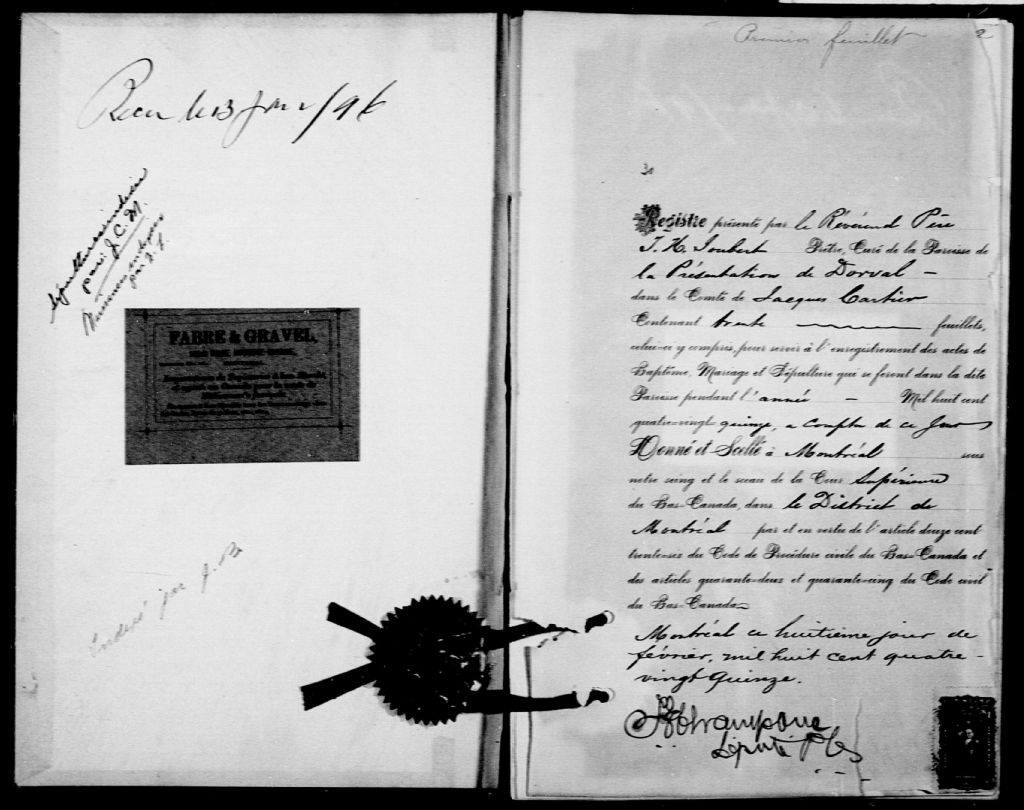 Recu le 13 Jan /96
Sépultures indiciées
par J. C. M.
par J. J.
FABRE & GRAVEL,
par J.
Premier feuillet 2
30
Registre présenté par le Révérend Père
J. H. Joubert Prêtre, Curé de la Paroisse de
la Présentation de Dorval —
dans le Comté de Jacques Cartier
Contenant trente feuillets,
celui-ci y compris, pour servir à l'enregistrement des actes de
Baptême, Mariage et Sépulture qui se feront dans la dite
Paroisse pendant l'année — Mil huit cent
quatre-vingt quinze, a compter de ce jour
Donné et Scellé à Montréal sous
notre seing et le sceau de la Cour Supérieure
du Bas-Canada, dans le District de
Montréal par et en vertu de l'article douze cent
trente-six du Code de Procédure civile du Bas-Canada et
des articles quarante-deux et quarante-cinq du Code civil
du Bas-Canada
Montréal ce huitième jour de
février, mil huit cent quatre-
vingt Quinze.
Député P C S